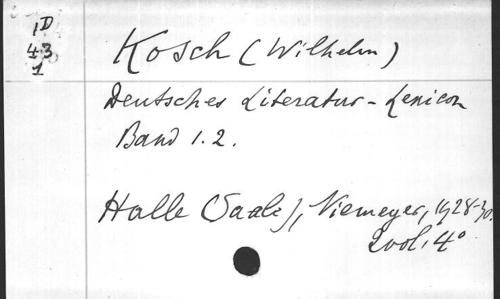 1D
43
1
Kosch (Wilhelm)
Deutsches Literatur-Lexicon
Band 1.2.
Halle (Saale), Niemeyer, 1928-30.
2 vol. 4°